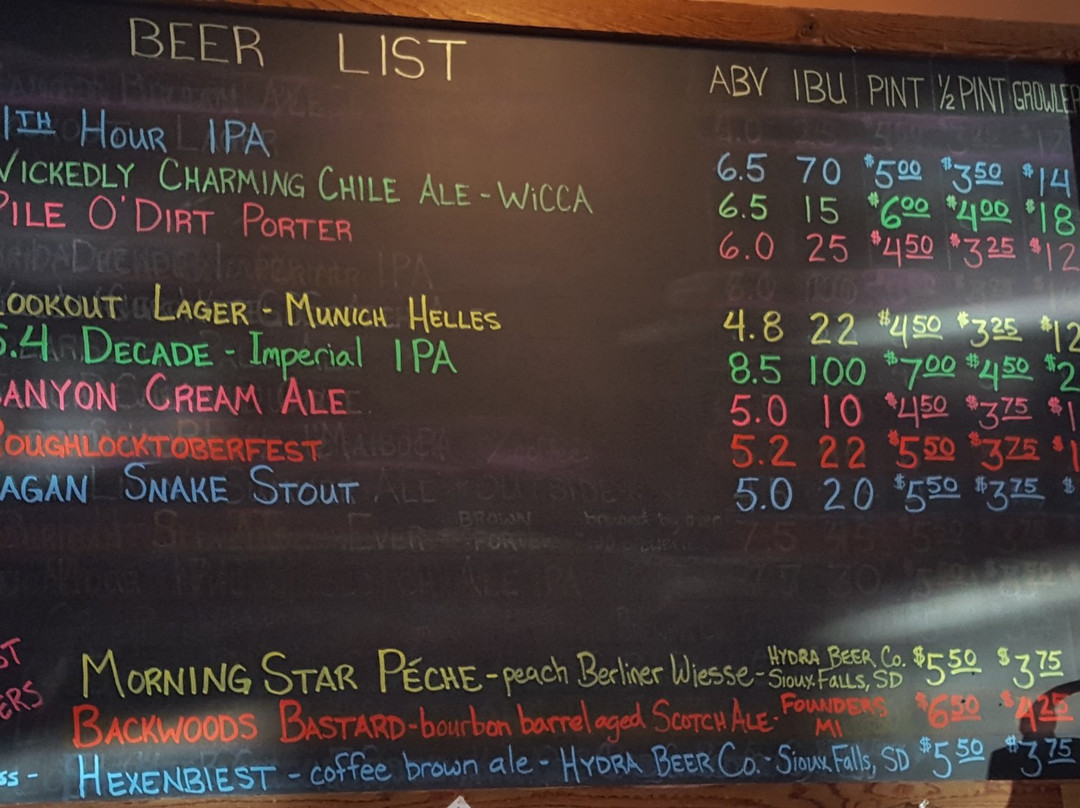 BEER LIST ABV IBU PINT ½ PINT GROWLER
1TH HOUR IPA 6.5 70 $5.00 $3.50 $14
WICKEDLY CHARMING CHILE ALE - WiCCA 6.5 15 $6.00 $4.00 $18
PILE O'DIRT PORTER 6.0 25 $4.50 $3.25 $12
LOOKOUT LAGER - MUNICH HELLES 4.8 22 $4.50 $3.25 $12
5.4 DECADE - Imperial IPA 8.5 100 $7.00 $4.50 $2
ANYON CREAM ALE 5.0 10 $4.50 $3.75 $1
ROUGHLOCKTOBERFEST 5.2 22 $5.50 $3.75 $1
AGAN SNAKE STOUT 5.0 20 $5.50 $3.75 $
ST
ERS
MORNING STAR PÉCHE - peach Berliner Wiesse - HYDRA BEER CO. SIOUX FALLS, SD $5.50 $3.75
BACKWOODS BASTARD - bourbon barrel aged SCOTCH ALE - FOUNDERS MI $6.50 $4.25
SS - HEXENBIEST - coffee brown ale - HYDRA BEER CO. - Sioux Falls, SD $5.50 $3.75